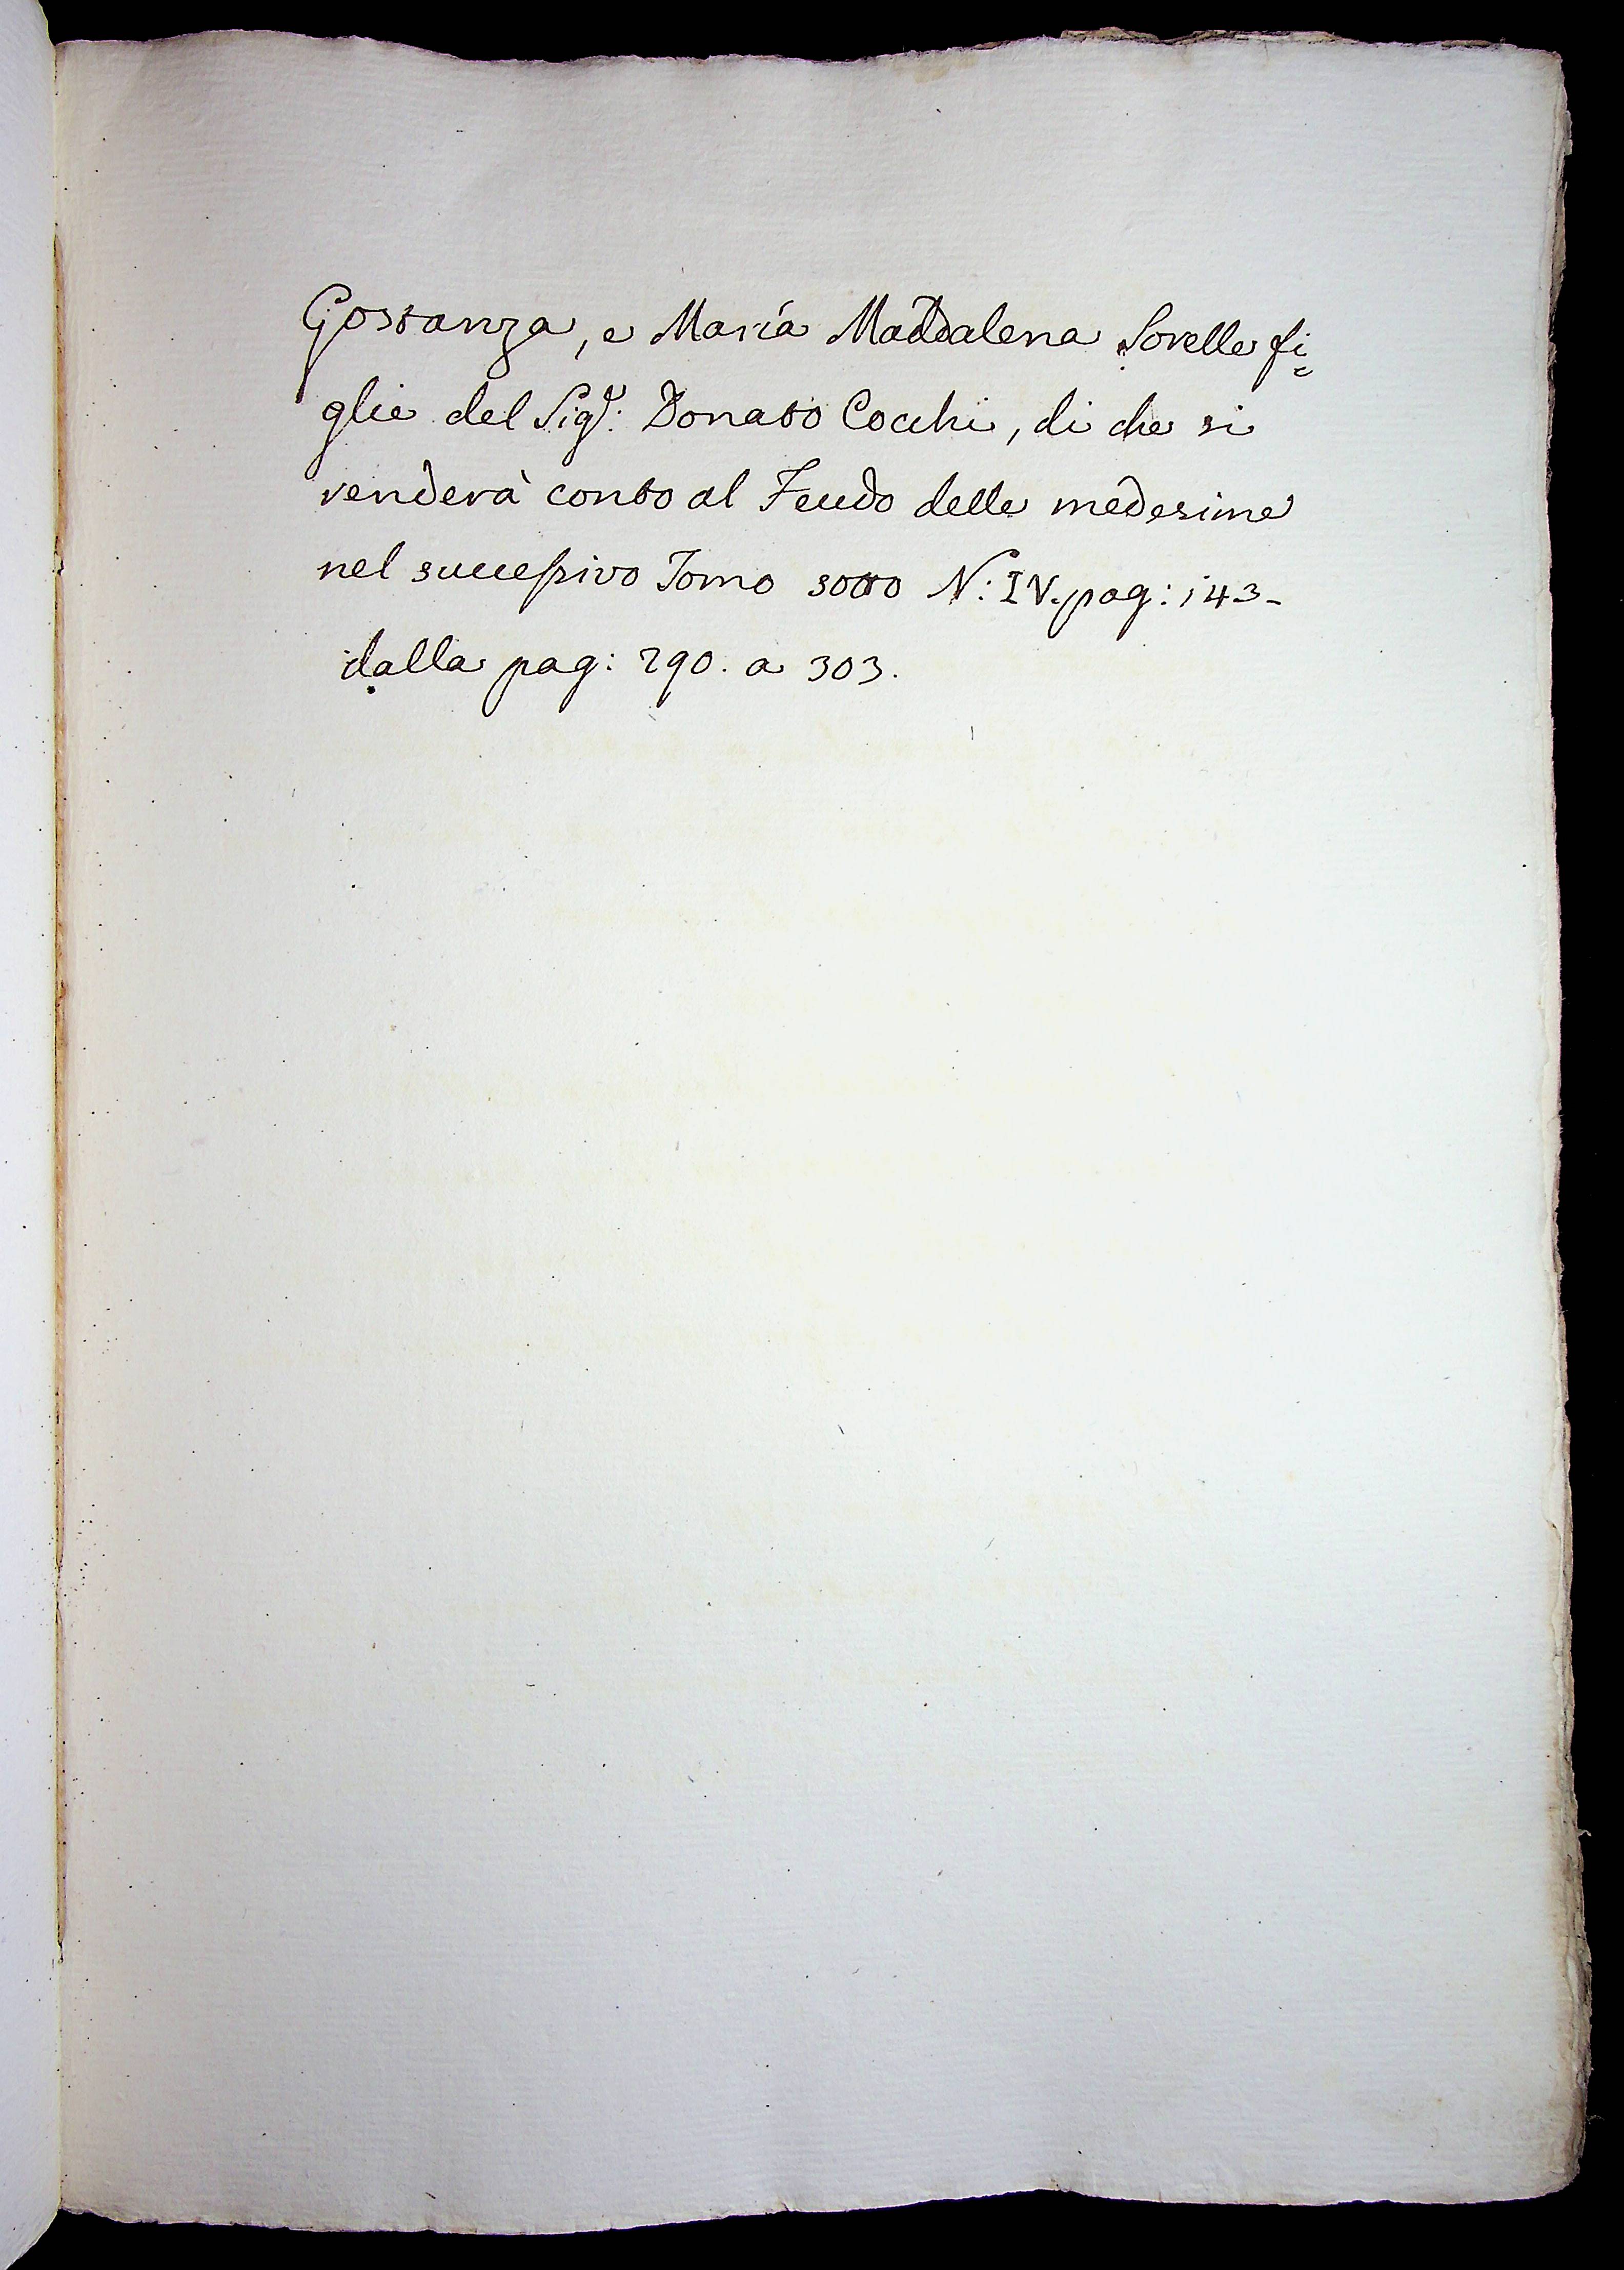 Gostanza, e Maria Maddalena Sorelle fi=
glie del Sig.r: Donato Cocchi, di che si
renderà conto al Feudo delle medesime
nel successivo Tomo sotto N: IV. pag: 143-
dalla pag: 290. a 303.